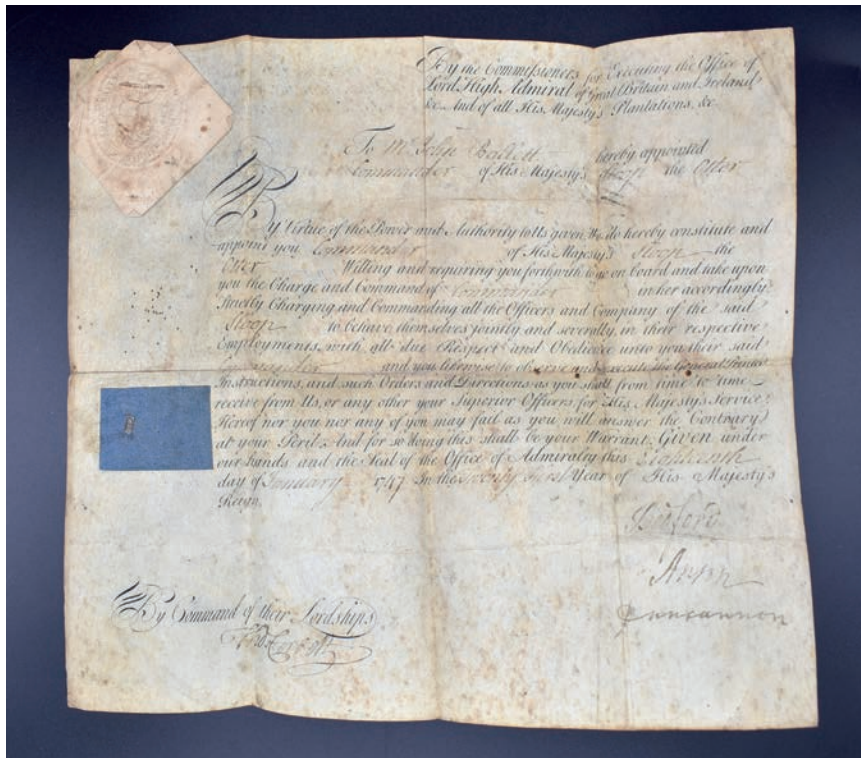 By the Commissioners for Executing the Office of
Lord High Admiral of Great Britain and Ireland
&c. And of all His Majesty's Plantations, &c.
To Mr. John hereby appointed
Commander of His Majesty's Sloop the Otter
By Virtue of the Power and Authority to Us given We do hereby constitute and
appoint you Commander of His Majesty's Sloop the
Otter Willing and requiring you forthwith to go on board and take upon
you the Charge and Command of Commander in her accordingly.
Strictly Charging and Commanding all the Officers and Company of the said
Sloop to behave themselves jointly and severally, in their respective
Employments, with all due Respect and Obedience unto you their said
Commander and you likewise to observe and execute the General Printed
Instructions, and such Orders and Directions as you shall from time to time
receive from Us, or any other your Superior Officers for His Majesty's Service,
Hereof nor you nor any of you may fail as you will answer the Contrary
at your Peril. And for so doing this shall be your Warrant. Given under
our hands and the Seal of the Office of Admiralty this Eighteenth
day of January 1747 In the Twenty first Year of His Majesty's
Reign.
Bedford
Anson
Duncannon
By Command of their Lordships
Thos Corbett